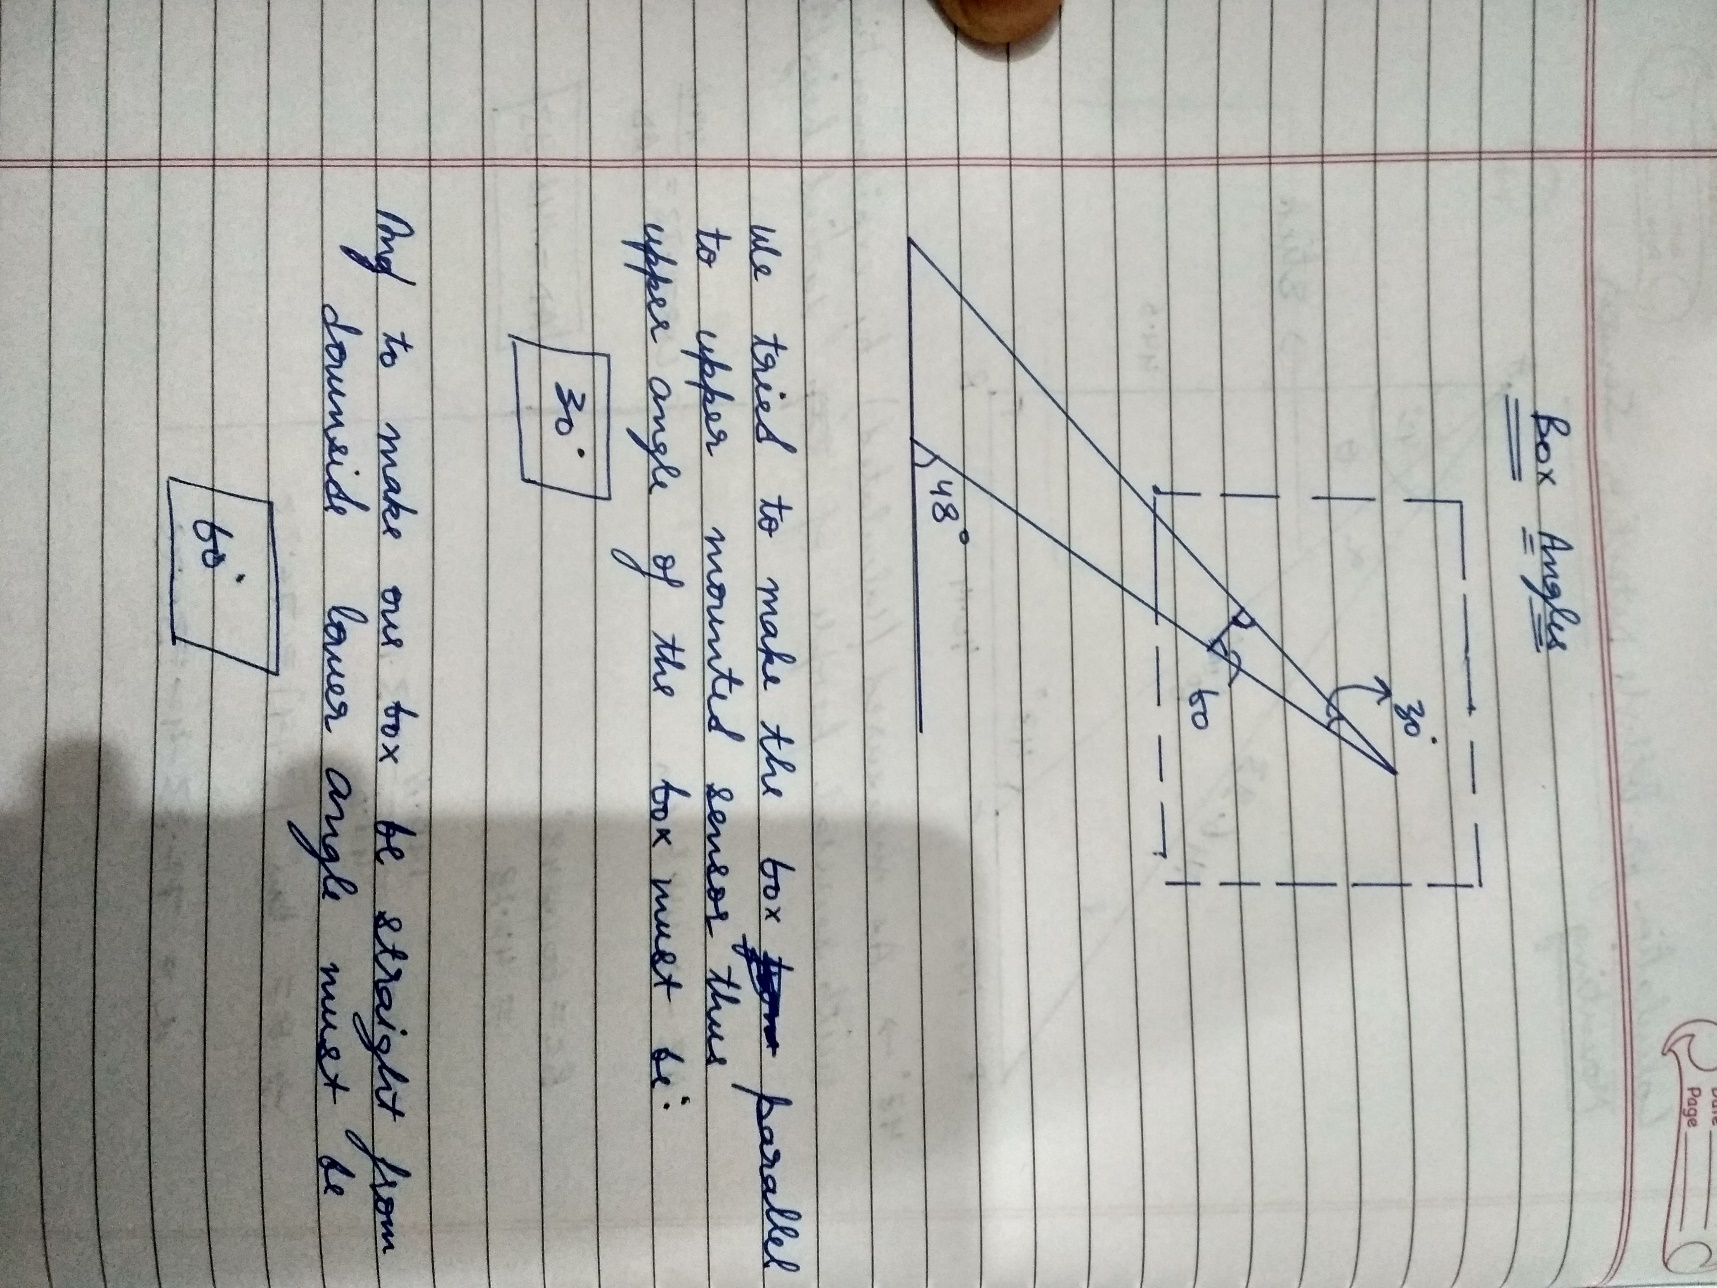 Date
Page
Box Angles
30°
60
48°
We tried to make the box parallel
to upper mounted sensor thus
upper angle of the box must be:
30°
And to make our box be straight from
downside lower angle must be
60°